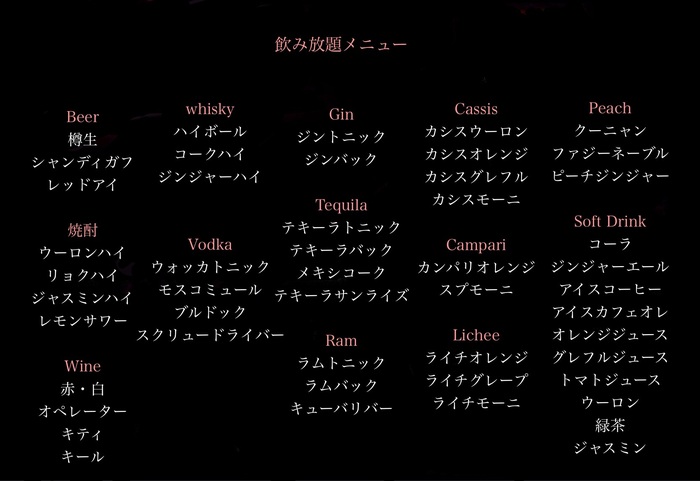 飲み放題メニュー
Beer
樽生
シャンディガフ
レッドアイ
焼酎
ウーロンハイ
リョクハイ
ジャスミンハイ
レモンサワー
Wine
赤・白
オペレーター
キティ
キール
whisky
ハイボール
コークハイ
ジンジャーハイ
Vodka
ウォッカトニック
モスコミュール
ブルドック
スクリュードライバー
Gin
ジントニック
ジンバック
Tequila
テキーラトニック
テキーラバック
メキシコーク
テキーラサンライズ
Ram
ラムトニック
ラムバック
キューバリバー
Cassis
カシスウーロン
カシスオレンジ
カシスグレフル
カシスモーニ
Campari
カンパリオレンジ
スプモーニ
Lichee
ライチオレンジ
ライチグレープ
ライチモーニ
Peach
クーニャン
ファジーネーブル
ピーチジンジャー
Soft Drink
コーラ
ジンジャーエール
アイスコーヒー
アイスカフェオレ
オレンジジュース
グレフルジュース
トマトジュース
ウーロン
緑茶
ジャスミン